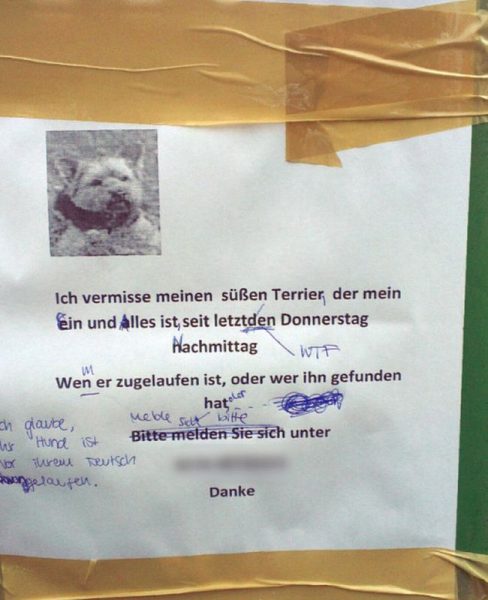 Ich vermisse meinen süßen Terrier, der mein
Ein und Alles ist, seit letztden Donnerstag
Nachmittag
WTF
m
Wen er zugelaufen ist, oder wer ihn gefunden
hat
melde bitte
Bitte melden Sie sich unter
ch glaube,
hr Hund ist
vor ihrem Deutsch
gelaufen.
Danke